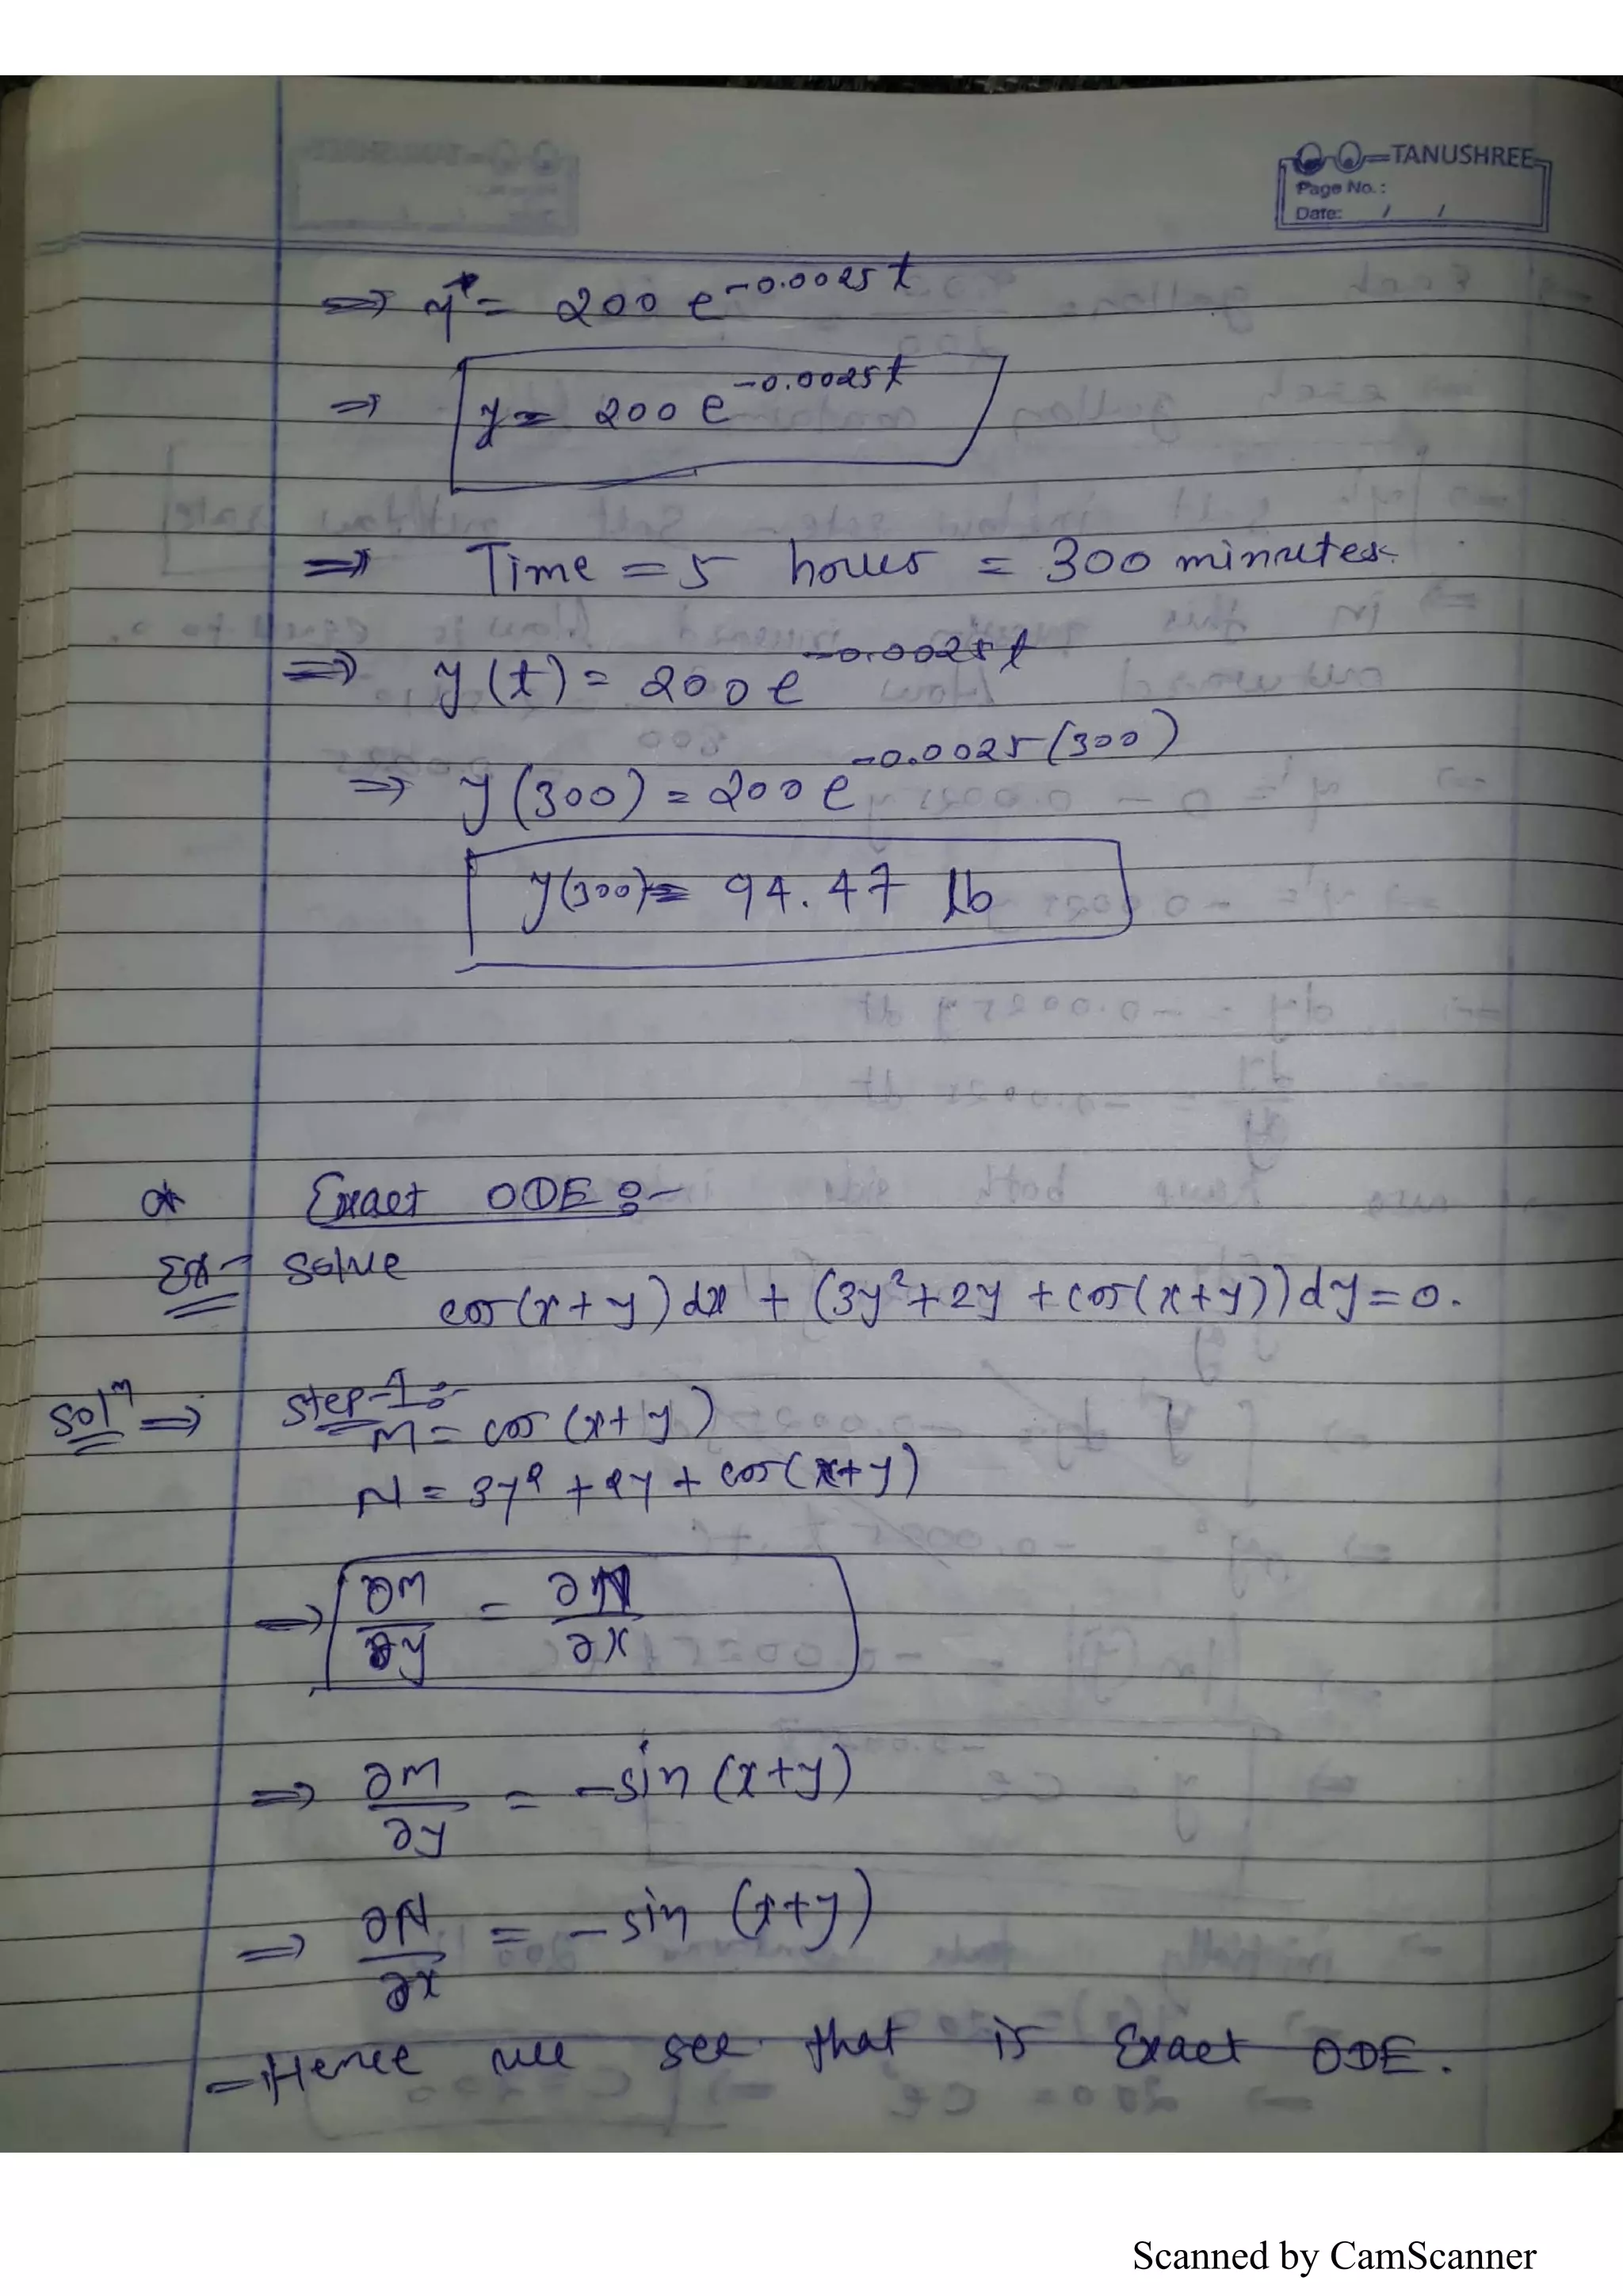 TANUSHREE
Page No.:
Date: / /
⇒ y = 200 e^{-0.0025t}
⇒ y = 200 e^{-0.0025t}
⇒ Time = 5 hours = 300 minutes.
⇒ y(t) = 200 e^{-0.0025t}
⇒ y(300) = 200 e^{-0.0025(300)}
y(300) = 94.47 lb
* Exact ODE :-
Ex- solve
cos(x+y)dx + (3y²+2y+cos(x+y))dy = 0.
Solⁿ ⇒ Step-1:-
M = cos(x+y)
N = 3y²+2y+cos(x+y)
⇒ ∂M/∂y = ∂N/∂x
⇒ ∂M/∂y = -sin(x+y)
⇒ ∂N/∂x = -sin(x+y)
- Hence we see that is Exact ODE.
Scanned by CamScanner